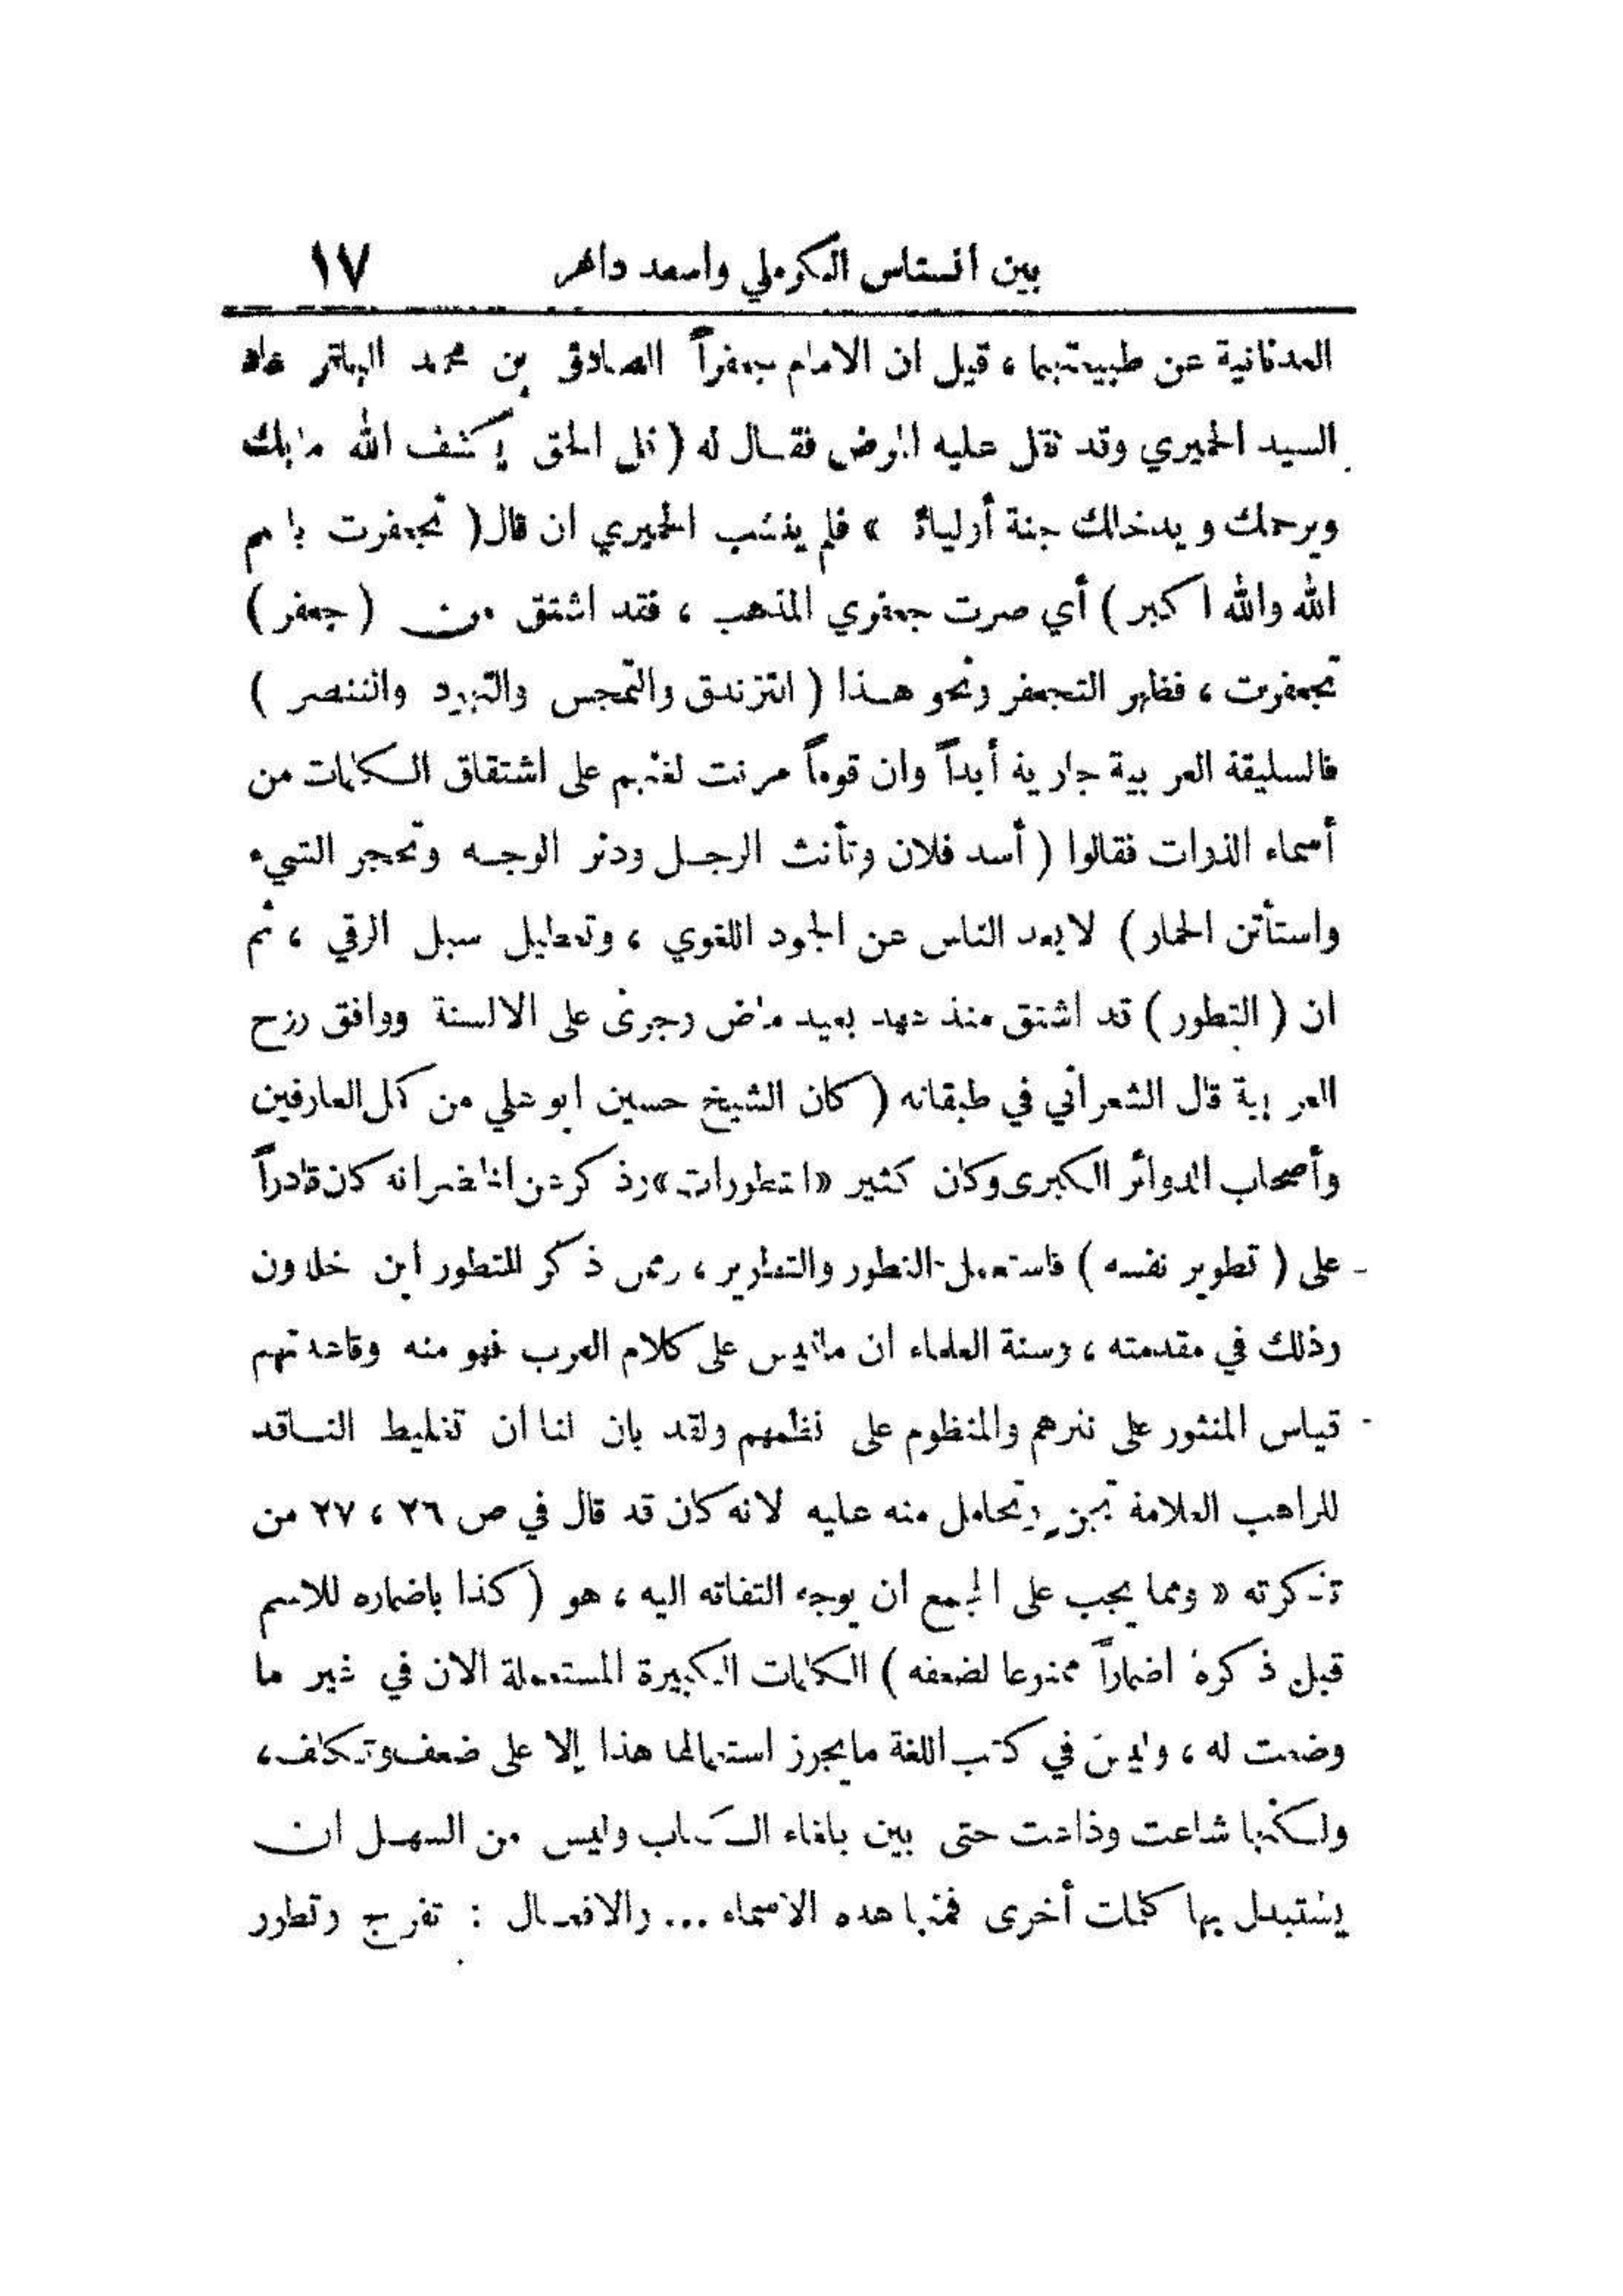 بين انستاس الكرملي واسعد داغر ١٧
العدنانية عن طبيعتهما ، قيل ان الامام جعفراً الصادق بن محمد الباقر عاد
السيد الحميري وقد ثقل عليه المرض فقال له ( قل الحق يكشف الله مابك
ويرحمك ويدخلك جنة أوليائه » فلم ينشب الحميري ان قال ( تجعفرت باسم
الله والله اكبر ) أي صرت جعفري المذهب ، فقد اشتق من ( جعفر )
تجعفرت ، فظهر التجعفر ونحو هذا ( التزندق والتمجس والتهود والتنصر )
فالسليقة العربية جارية أبداً وان قوماً مرنت لغتهم على اشتقاق الكلمات من
أسماء الذوات فقالوا ( أسد فلان وتأنث الرجل ودنر الوجه وتحجر الشيء
واستأتن الحمار ) لابعد الناس عن الجمود اللغوي ، وتعطيل سبل الرقي ، ثم
ان ( التطور ) قد اشتق منذ عهد بعيد ماض وجرى على الالسنة ووافق روح
العربية قال الشعراني في طبقاته ( كان الشيخ حسين ابو علي من كمل العارفين
وأصحاب الدوائر الكبرى وكان كثير «التطورات» وذكر عن الخضر انه كان قادراً
على ( تطوير نفسه ) فاستعمل التطور والتطوير ، وممن ذكر التطور ابن خلدون
وذلك في مقدمته ، وسنة العلماء ان ماقيس على كلام العرب فهو منه وقاعدتهم
قياس المنثور على نثرهم والمنظوم على نظمهم ولقد بان لنا ان تغليط الناقد
للراهب العلامة تجن وتحامل منه عليه لانه كان قد قال في ص ٢٦ ، ٢٧ من
تذكرته « ومما يجب على المجمع ان يوجه التفاته اليه ، هو ( كذا باضماره للاسم
قبل ذكره اضماراً ممنوعا لضعفه ) الكلمات الكبيرة المستعملة الان في غير ما
وضعت له ، وليس في كتب اللغة مايجوز استعمالها هذا إلا على ضعف وتكلف ،
ولكنها شاعت وذاعت حتى بين بلغاء الكتاب وليس من السهل ان
يستبدل بها كلمات أخرى فمنها هذه الاسماء ... والافعال : تفرج وتطور